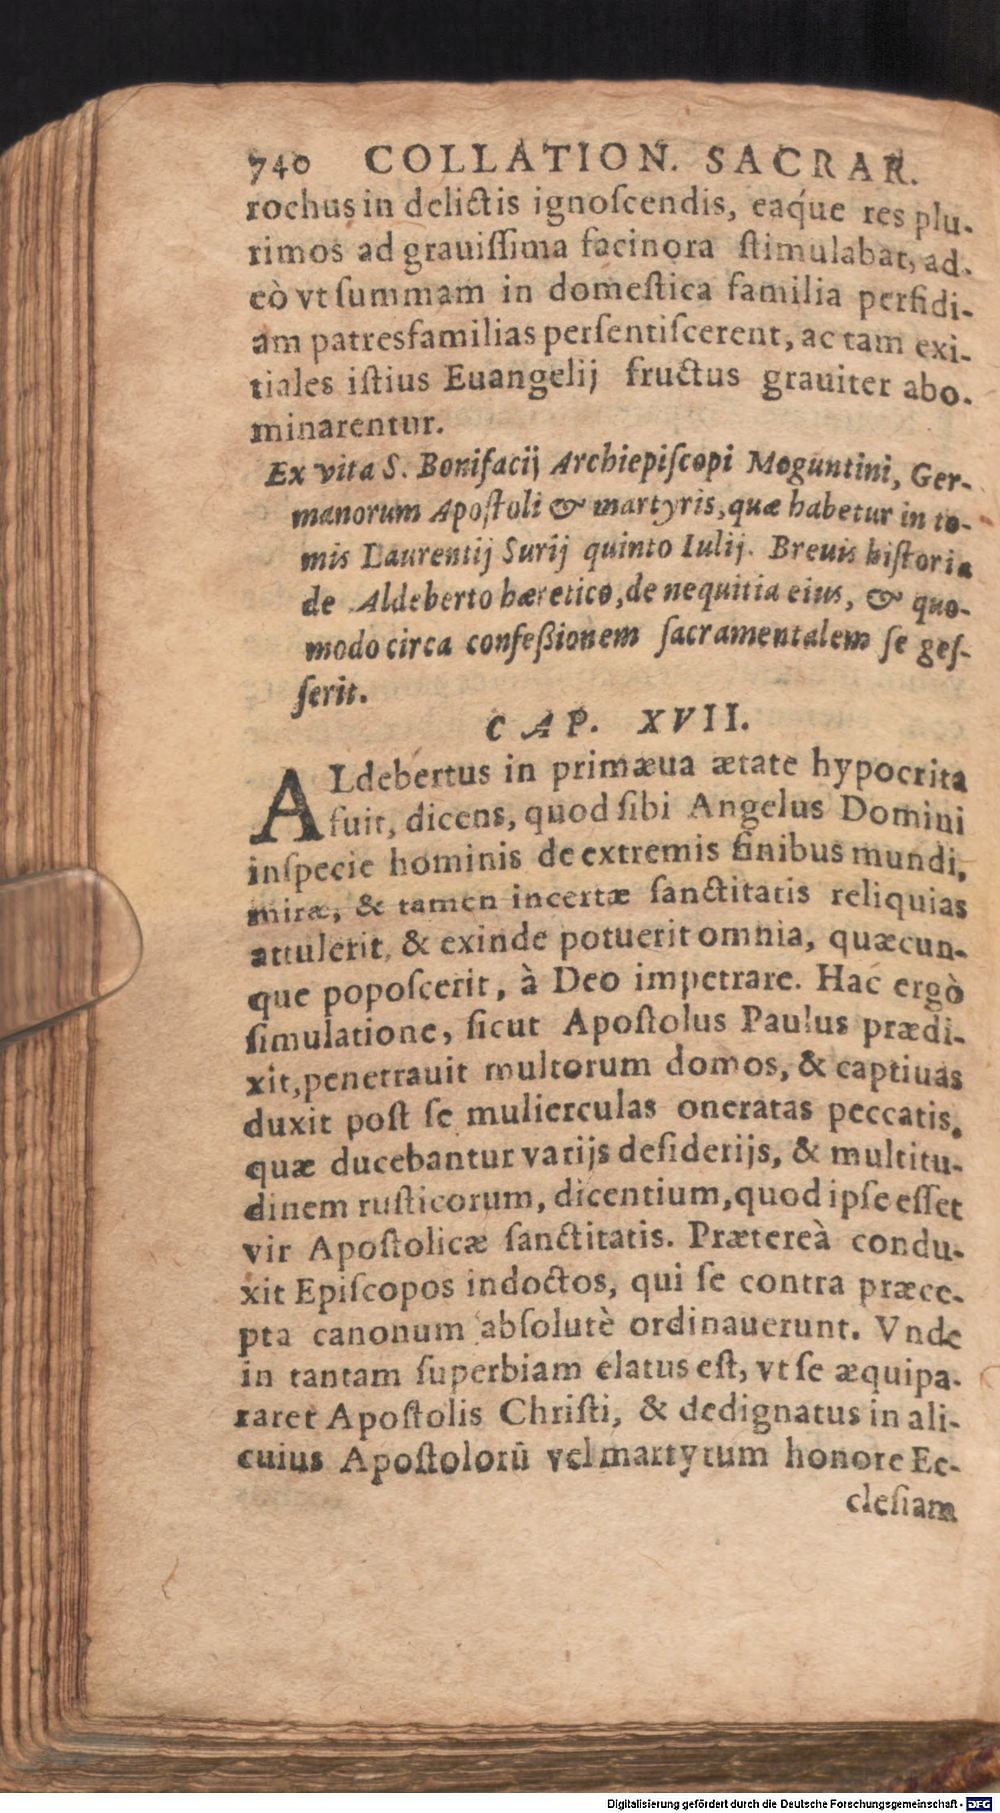 740 COLLATION. SACRAR.
rochus in delictis ignoſcendis, eaq́ue res plu-
rimos ad grauiſſima facinora ſtimulabat, ad-
eò vt ſummam in domeſtica familia perfidi-
am patresfamilias perſentiſcerent, ac tam exi-
tiales iſtius Euangelij fructus grauiter abo-
minarentur.
Ex vita S. Bonifacij Archiepiſcopi Moguntini, Ger-
manorum Apoſtoli & martyris, quæ habetur in to-
mis Laurentij Surij quinto Iulij. Breuis hiſtoria
de Aldeberto hæretico, de nequitia eius, & quo-
modo circa confeßionem ſacramentalem ſe geſ-
ſerit.
CAP. XVII.
ALdebertus in primæua ætate hypocrita
fuit, dicens, quod ſibi Angelus Domini
in ſpecie hominis de extremis finibus mundi,
miræ, & tamen incertæ ſanctitatis reliquias
attulerit, & exinde potuerit omnia, quæcun-
que popoſcerit, à Deo impetrare. Hac ergò
ſimulatione, ſicut Apoſtolus Paulus prædi-
xit, penetrauit multorum domos, & captiuas
duxit poſt ſe mulierculas oneratas peccatis,
quæ ducebantur varijs deſiderijs, & multitu-
dinem ruſticorum, dicentium, quod ipſe eſſet
vir Apoſtolicæ ſanctitatis. Prætereà condu-
xit Epiſcopos indoctos, qui ſe contra præce-
pta canonum abſolutè ordinauerunt. Vnde
in tantam ſuperbiam elatus eſt, vt ſe æquipa-
raret Apoſtolis Chriſti, & dedignatus in ali-
cuius Apoſtolorū vel martyrum honore Ec-
cleſiam
Digitalisierung gefördert durch die Deutsche Forschungsgemeinschaft - DFG